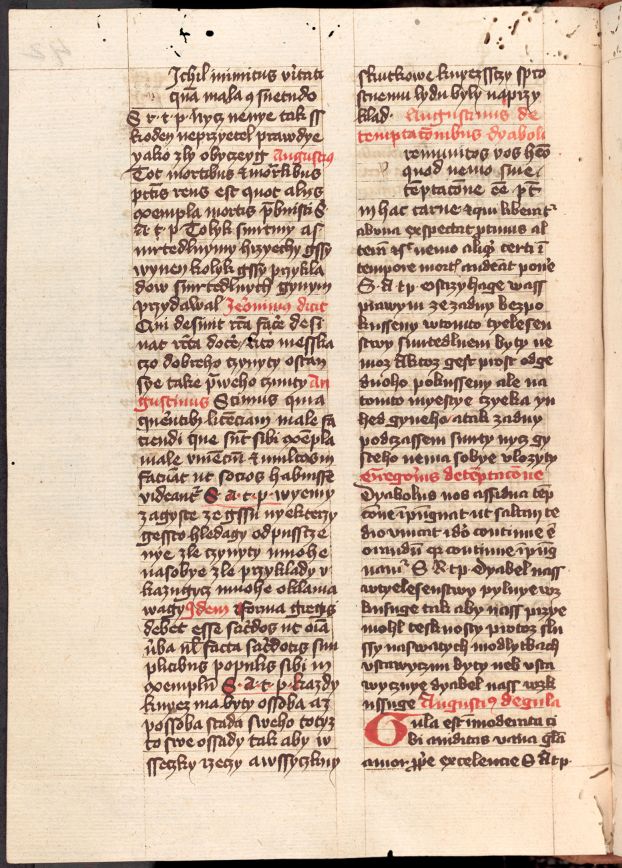 Ichil inimicus v͛itati
quā mala ꝯsuetudo
S · r · t · p · Nycz nenye tak ss
kodny neprzyetel prawdye
yako zly obyczeyg Augustiꝯ
Tot mortibus ⁊ mortibus
reus est quot aliis
exempla mortis p̄buisti S
A t p Tolyk smrtmy a
smrtedlnymy hrzyechy gssy
wynen kolyk gssy przykla
dow smrtedlnych gynym
przydawal Jeronimꝯ dicit
Qui desinit rc̄a fac̄e desi
nat rc̄a doc̄e Kto messka
czo dobreho czynyty ostan
sye take p̄weho czinity Au
gustinus Scimus quia
male fa
ciendi que sūt sibi exēpla
male viuenciū ⁊ multos in
faciāt ut socios habuisse
videant͛ S · A · t · p · wyemy
zagyste ze gssu nyekterzy
gessto hledagy odpuscze
nye zle czynyty mnohe
nasobye zle przyklady v
kazugycz mnohe oklama
wagy Idem Forma gregis
debet esse sac͛dos ut oīa
v̄ba ul̄ facta sac͛dotis sin
plicibus populis sibi in
exemplū S · A · t · p · kazdy
knyez ma byty ossoba az
possoba stada sweho totyz
to swe ossady tak aby w
sseczky rzeczy a wssyczkny
skutkowe knyezssczy spro
stnemu lydu byly naprzy
klad · Augustinus de
temptac̄onibus dyaboli
remunitos vos
quod nemo sine
teptac̄one pt̄
in hac carne ⁊ qui liberat͛
ab una expectat primus al
teram nemo aliꝙ certi ī
tempore mort͛ audeat pon͛e
S · A · t · p ostrzyhage wass
prawym ze zadny bezpo
kusseny wtomto tyelesen
stwy smrtedlnem byty ne
moz A ktoz gest prost odge
dnoho pokusseny ale na
tomto myestye czyeka yn
hed gyneho a tak zadny
podzassem smrty nycz gy
steho nema sobye vlozyty
Gregoriꝯ de teptac̄one
Dyabolus nos assidua tep̄
c̄one īpugnat ut saltim te
dio vincat ido continue ē
orandū continue īpug
nam͛ S · A · t · p · Dyabel nass
wtyelesenstwy pylnye wz
kussuge tak aby nass przye
mohl tesknosty protoz slu
ssy nas waticz modlytbach
vstawycznu byty neb vsta
wycznye dyabel nass wzk
ussuge Augustiꝯ de gula
Gula est īmoderata ci
bi auiditas vana gl̄a
amor excelencie S A t p ·